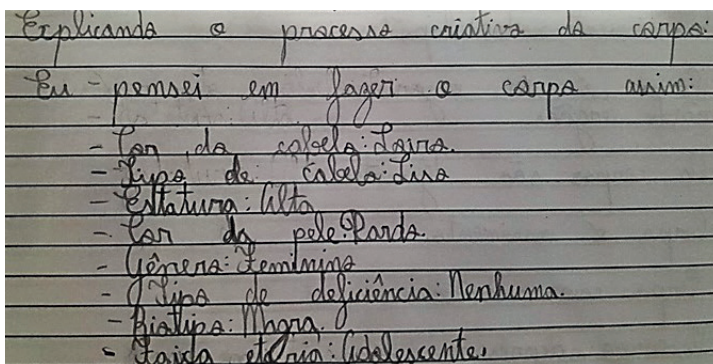 Explicando o processo criativo do corpo:
Eu - pensei em fazer o corpo assim:
- Cor do cabelo: Loiro.
- Tipo de cabelo: Liso
- Estatura: Alta
- Cor da pele: Parda.
- Gênero: Feminino
- Tipo de deficiência: Nenhuma.
- Biotipo: Magra.
- Faixa etária: Adolescente.